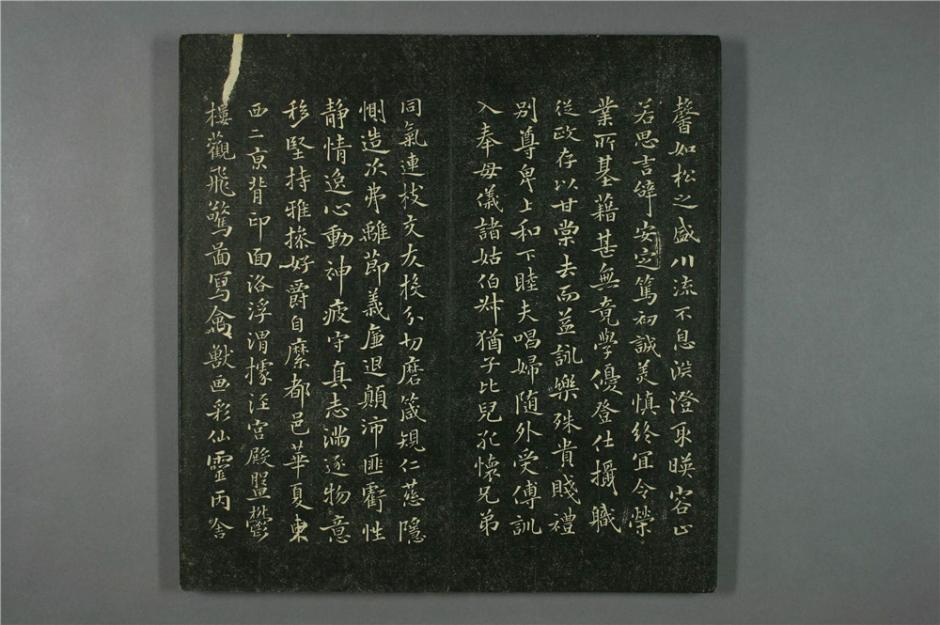 馨如松之盛川流不息淵澄取暎容止
若思言辝安定篤初誠美慎終宜令榮
業所基藉甚無竟學優登仕攝職
從政存以甘棠去而益詠樂殊貴賤禮
別尊卑上和下睦夫唱婦随外受傅訓
入奉母儀諸姑伯叔猶子比兒孔懷兄弟
同氣連枝交友投分切磨箴規仁慈隱
惻造次弗離節義廉退顛沛匪虧性
静情逸心動神疲守真志滿逐物意
移堅持雅操好爵自縻都邑華夏東
西二京背邙面洛浮渭據涇宮殿盤欝
樓觀飛驚啚寫禽獸画彩仙靈丙舍